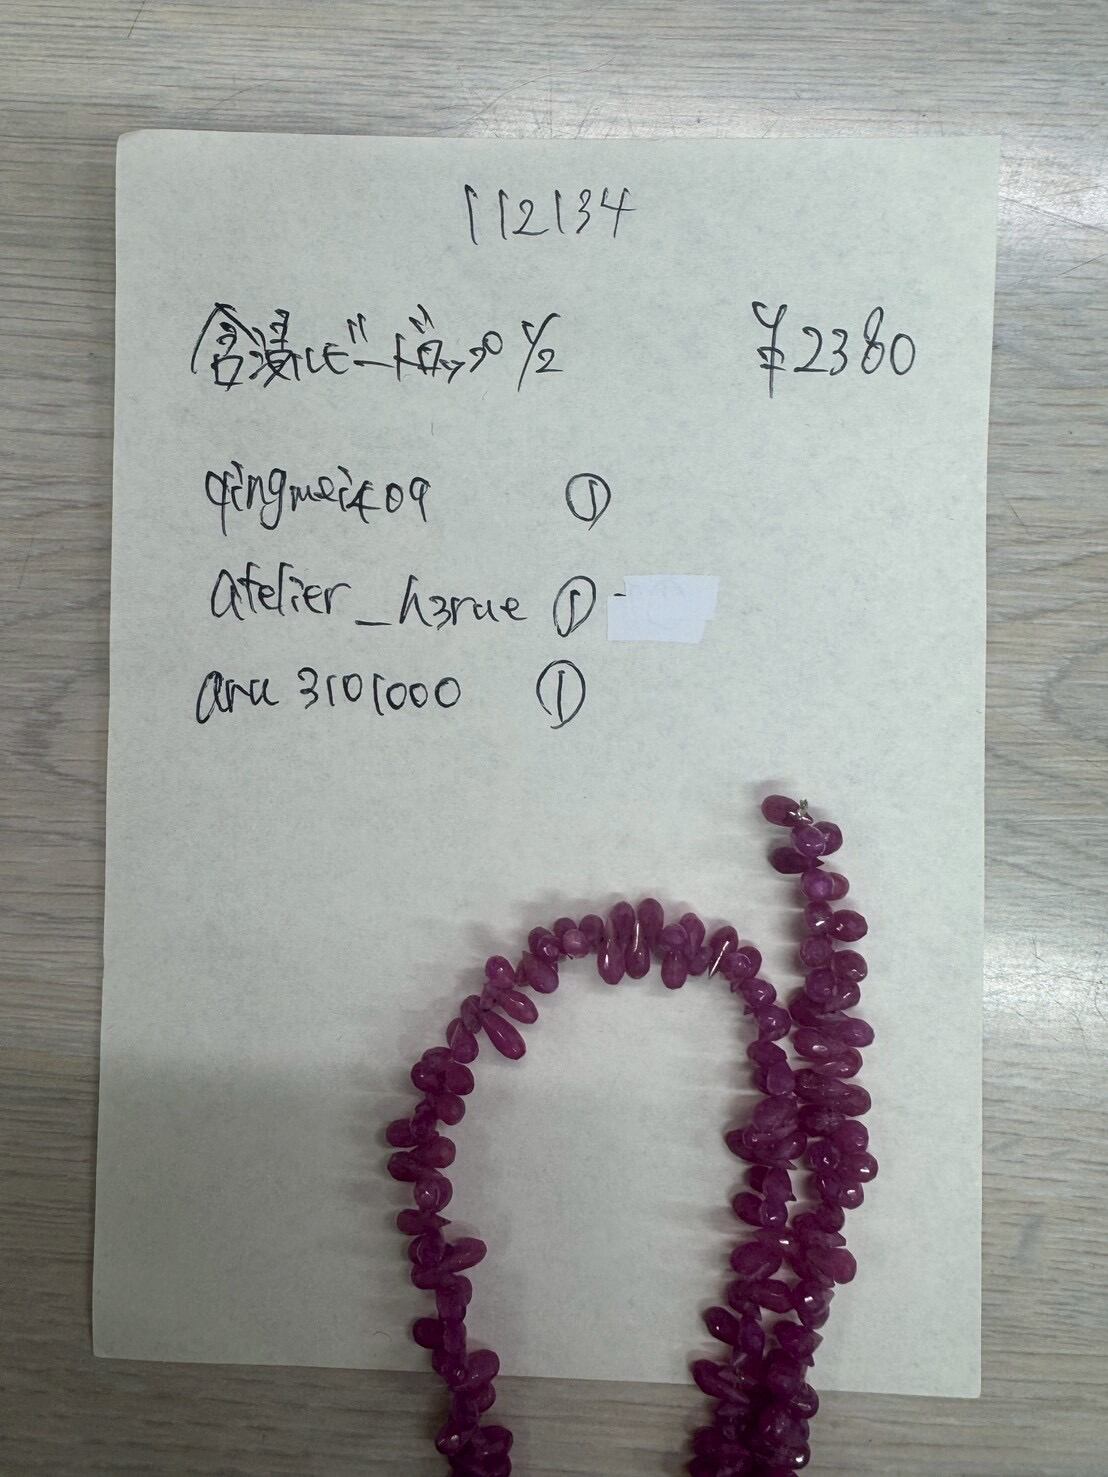 112134
含浸ルビードロップ 1/2 ¥2380
qingmei409 ①
atelier_h3rae ①
aru 3101000 ①